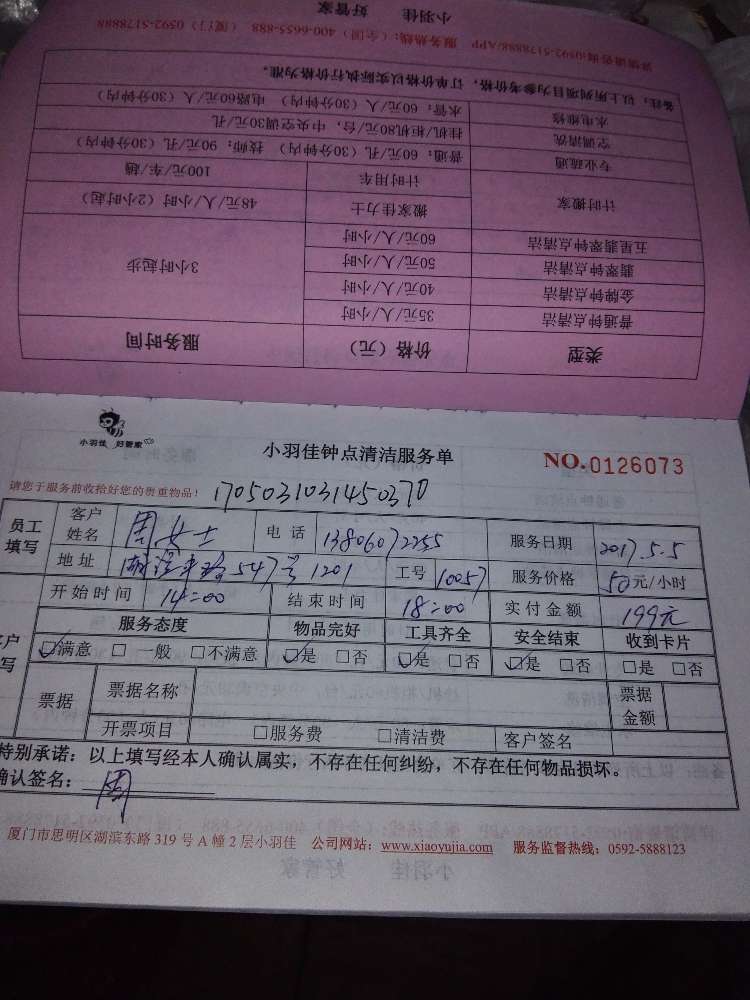 小羽佳 好管家
服务热线：（全国）400-6655-888 （厦门）0592-5178888
备注：以上所列项目为参考价格，订单价格以实际执行价格为准。
水电维修 水管：60元/人（30分钟内） 电路60元/人（30分钟内）
空调清洗 挂机/柜机80元/台，中央空调30元/孔
专业疏通 普通：60元/孔（30分钟内） 技师：90元/孔（30分钟内）
计时用车 100元/车/趟
计时搬家
搬家佳力士 48元/人/小时（2小时起）
五星翡翠钟点清洁 60元/人/小时
翡翠钟点清洁 50元/人/小时
3小时起步
金牌钟点清洁 40元/人/小时
普通钟点清洁 35元/人/小时
类型 价格（元） 服务时间
小羽佳 好管家
小羽佳钟点清洁服务单
NO.0126073
请您于服务前收拾好您的贵重物品！
1705031031450370
员工填写
客户姓名 周女士 电话 13806072255 服务日期 2017.5.5
地址 547号1201 工号 10057 服务价格 50元/小时
开始时间 14:00 结束时间 18:00 实付金额 199元
服务态度 物品完好 工具齐全 安全结束 收到卡片
☑满意 □一般 □不满意 ☑是 □否 ☑是 □否 ☑是 □否 □是 □否
票据 票据名称 票据金额
开票项目 □服务费 □清洁费 客户签名
特别承诺：以上填写经本人确认属实，不存在任何纠纷，不存在任何物品损坏。
确认签名：周
厦门市思明区湖滨东路319号A幢2层小羽佳 公司网站：www.xiaoyujia.com 服务监督热线：0592-5888123